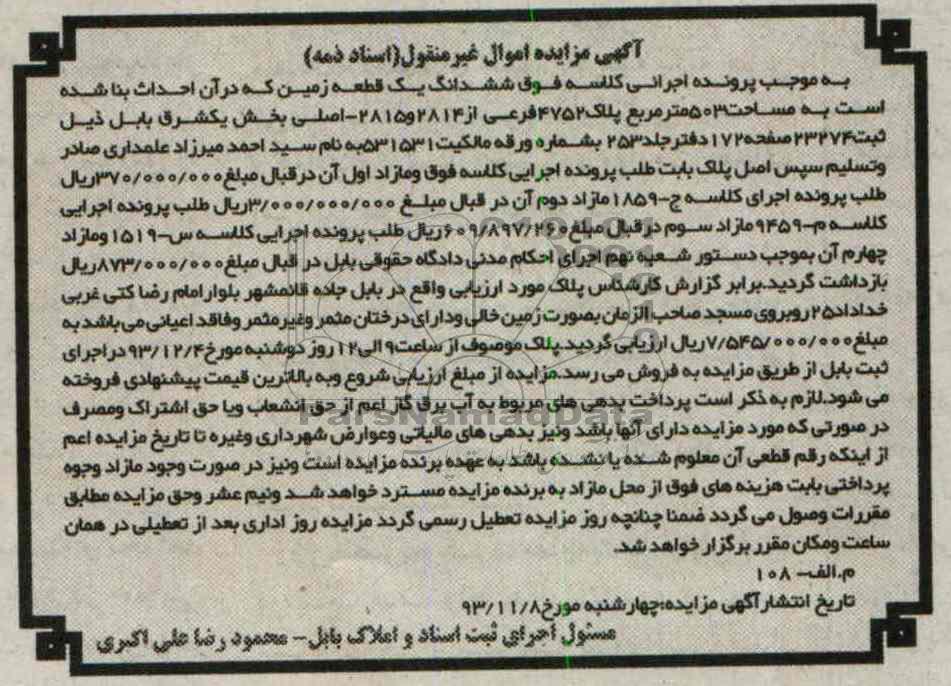 آگهی مزایده اموال غیرمنقول(اسناد ذمه)
به موجب پرونده اجرائی کلاسه فوق ششدانگ یک قطعه زمین که درآن احداث بنا شده
است به مساحت۵۰۳مترمربع پلاک۴۷۵۲فرعی از۲۸۱۴و۲۸۱۵-اصلی بخش یکشرق بابل ذیل
ثبت۲۳۲۷۴صفحه۱۷۲دفترجلد۲۵۳ بشماره ورقه مالکیت۵۳۱۵۳۱به نام سید احمد میرزاد علمداری صادر
وتسلیم سپس اصل پلاک بابت طلب پرونده اجرایی کلاسه فوق ومازاد اول آن درقبال مبلغ۳۷۰/۰۰۰/۰۰۰ریال
طلب پرونده اجرای کلاسه ج-۱۸۵۹مازاد دوم آن در قبال مبلغ ۳/۰۰۰/۰۰۰/۰۰۰ریال طلب پرونده اجرایی
کلاسه م-۹۴۵۹مازاد سوم درقبال مبلغ۶۰۹/۸۹۷/۲۶۰ریال طلب پرونده اجرایی کلاسه س-۱۵۱۹ ومازاد
چهارم آن بموجب دستور شعبه نهم اجرای احکام مدنی دادگاه حقوقی بابل در قبال مبلغ۸۷۳/۰۰۰/۰۰۰ریال
بازداشت گردید.برابر گزارش کارشناس پلاک مورد ارزیابی واقع در بابل جاده قائمشهر بلوارامام رضا کتی غربی
خداداد۲۵روبروی مسجد صاحب الزمان بصورت زمین خالی ودارای درختان مثمر وغیرمثمر وفاقد اعیانی می باشد به
مبلغ۷/۵۴۵/۰۰۰/۰۰۰ریال ارزیابی گردید.پلاک موصوف از ساعت۹الی۱۲روز دوشنبه مورخ۹۳/۱۲/۴دراجرای
ثبت بابل از طریق مزایده به فروش می رسد.مزایده از مبلغ ارزیابی شروع وبه بالاترین قیمت پیشنهادی فروخته
می شود.لازم به ذکر است پرداخت بدهی های مربوط به آب برق گاز اعم از حق انشعاب ویا حق اشتراک ومصرف
در صورتی که مورد مزایده دارای آنها باشد ونیز بدهی های مالیاتی وعوارض شهرداری وغیره تا تاریخ مزایده اعم
از اینکه رقم قطعی آن معلوم شده یا نشده باشد به عهده برنده مزایده است ونیز در صورت وجود مازاد وجوه
پرداختی بابت هزینه های فوق از محل مازاد به برنده مزایده مسترد خواهد شد ونیم عشر وحق مزایده مطابق
مقررات وصول می گردد ضمنا چنانچه روز مزایده تعطیل رسمی گردد مزایده روز اداری بعد از تعطیلی در همان
ساعت ومکان مقرر برگزار خواهد شد.
م.الف- ۱۰۸
تاریخ انتشارآگهی مزایده:چهارشنبه مورخ۹۳/۱۱/۸
مسئول اجرای ثبت اسناد و املاک بابل- محمود رضا علی اکبری
ParsNamadData